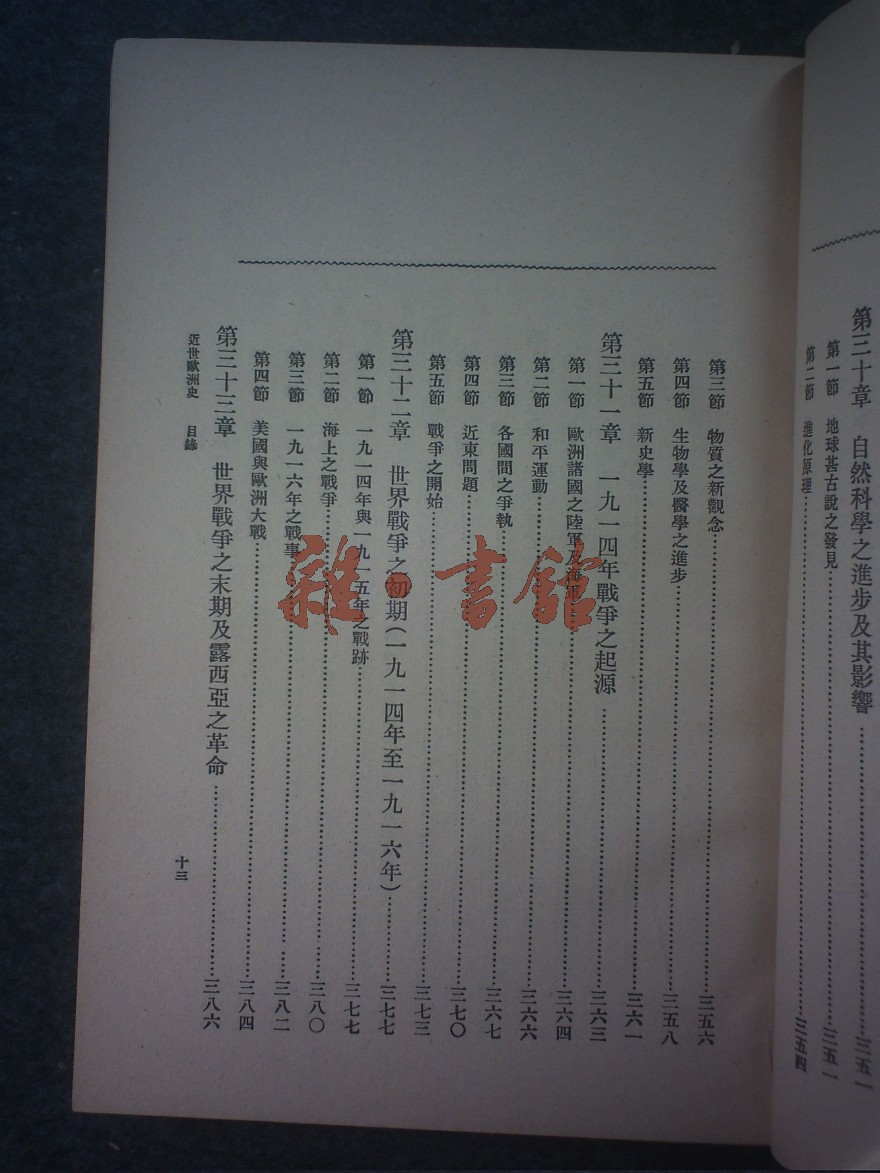 第三十章　自然科學之進步及其影響……三五一
第一節　地球甚古說之發見……三五一
第二節　進化原理……三五四
第三節　物質之新觀念……三五六
第四節　生物學及醫學之進步……三五八
第五節　新史學……三六一
第三十一章　一九一四年戰爭之起源……三六三
第一節　歐洲諸國之陸軍及海軍……三六四
第二節　和平運動……三六六
第三節　各國間之爭執……三六七
第四節　近東問題……三七〇
第五節　戰爭之開始……三七三
第三十二章　世界戰爭之初期（一九一四年至一九一六年）……三七七
第一節　一九一四年與一九一五年之戰跡……三七七
第二節　海上之戰爭……三八〇
第三節　一九一六年之戰事……三八二
第四節　美國與歐洲大戰……三八四
第三十三章　世界戰爭之末期及露西亞之革命……三八六
近世歐洲史　目錄　十三
雜·書館